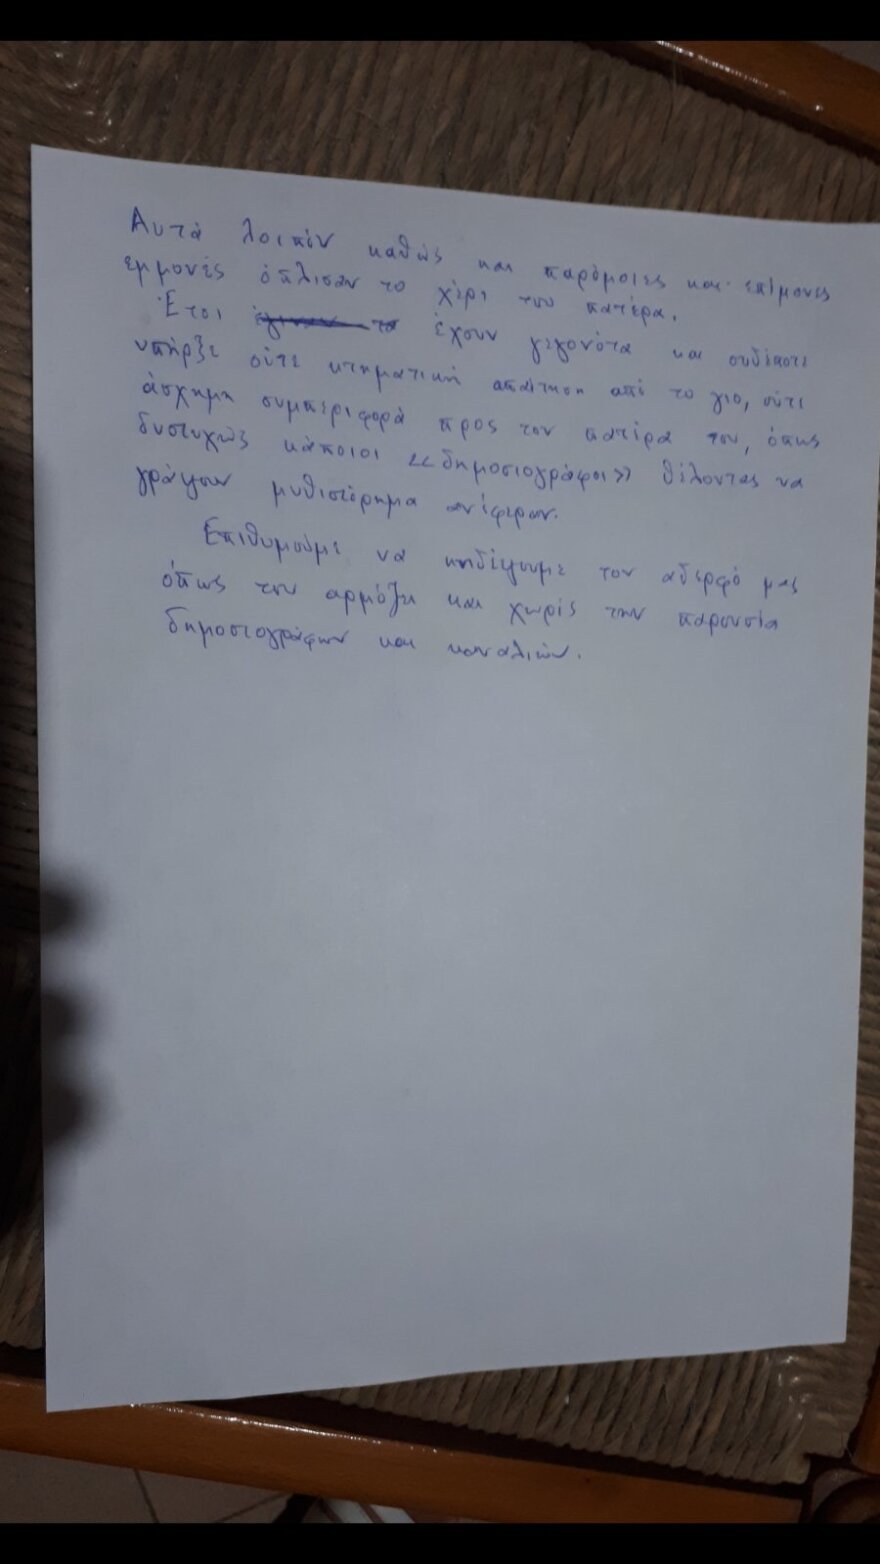 Αυτά λοιπόν καθώς και παρόμοιες και επίμονες
εμμονές όπλισαν το χέρι του πατέρα.
Έτσι έχουν γεγονότα και ουδέποτε
υπήρξε ούτε κτηματική απαίτηση από το γιο, ούτε
άσχημη συμπεριφορά προς τον πατέρα του, όπως
δυστυχώς κάποιοι <<δημοσιογράφοι>> θέλοντας να
γράψουν μυθιστόρημα ανέφεραν.
Επιθυμούμε να κηδέψουμε τον αδερφό μας
όπως του αρμόζει και χωρίς την παρουσία
δημοσιογράφων και καναλιών.